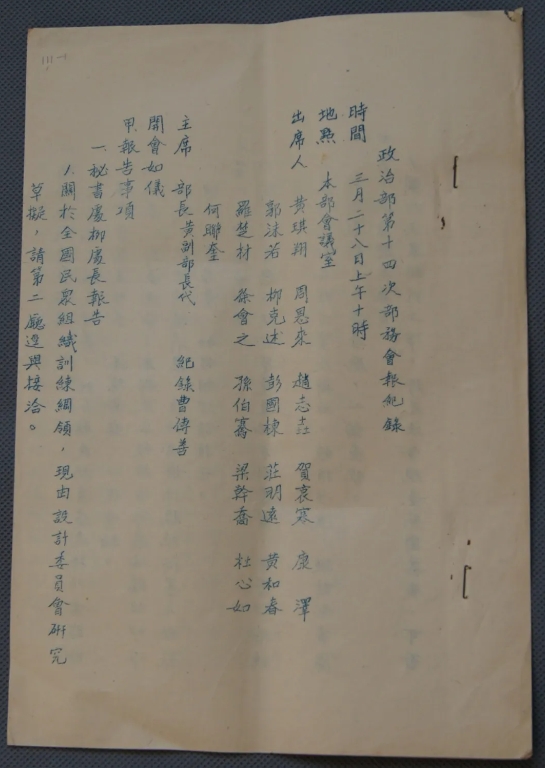 政治部第十四次部務會報紀錄
時間 三月二十八日上午十時
地點 本部會議室
出席人 黃琪翔 周恩來 趙志垚 賀衷寒 康澤
郭沫若 柳克述 彭國棟 莊明遠 黃和春
羅楚材 徐會之 孫伯騫 梁幹喬 杜心如
何聯奎
主席 部長黃副部長代 紀錄曹傳善
開會如儀
甲、報告事項
一、秘書處柳處長報告
1.關於全國民衆組織訓練綱領，現由設計委員會研究
草擬，請第二廳逕與接洽。
111-1